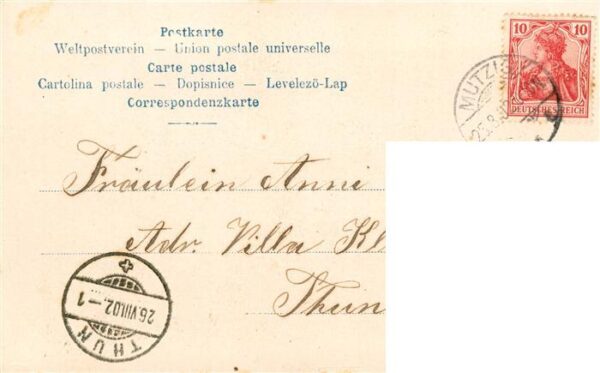 Postkarte
Weltpostverein — Union postale universelle
Carte postale
Cartolina postale — Dopisnice — Levelezö-Lap
Correspondenzkarte
10 10
DEUTSCHES REICH
MUTZIG
25.8.
Fräulein Anni
Adr. Villa Kl
Thun
THUN
26.VIII.02.–1